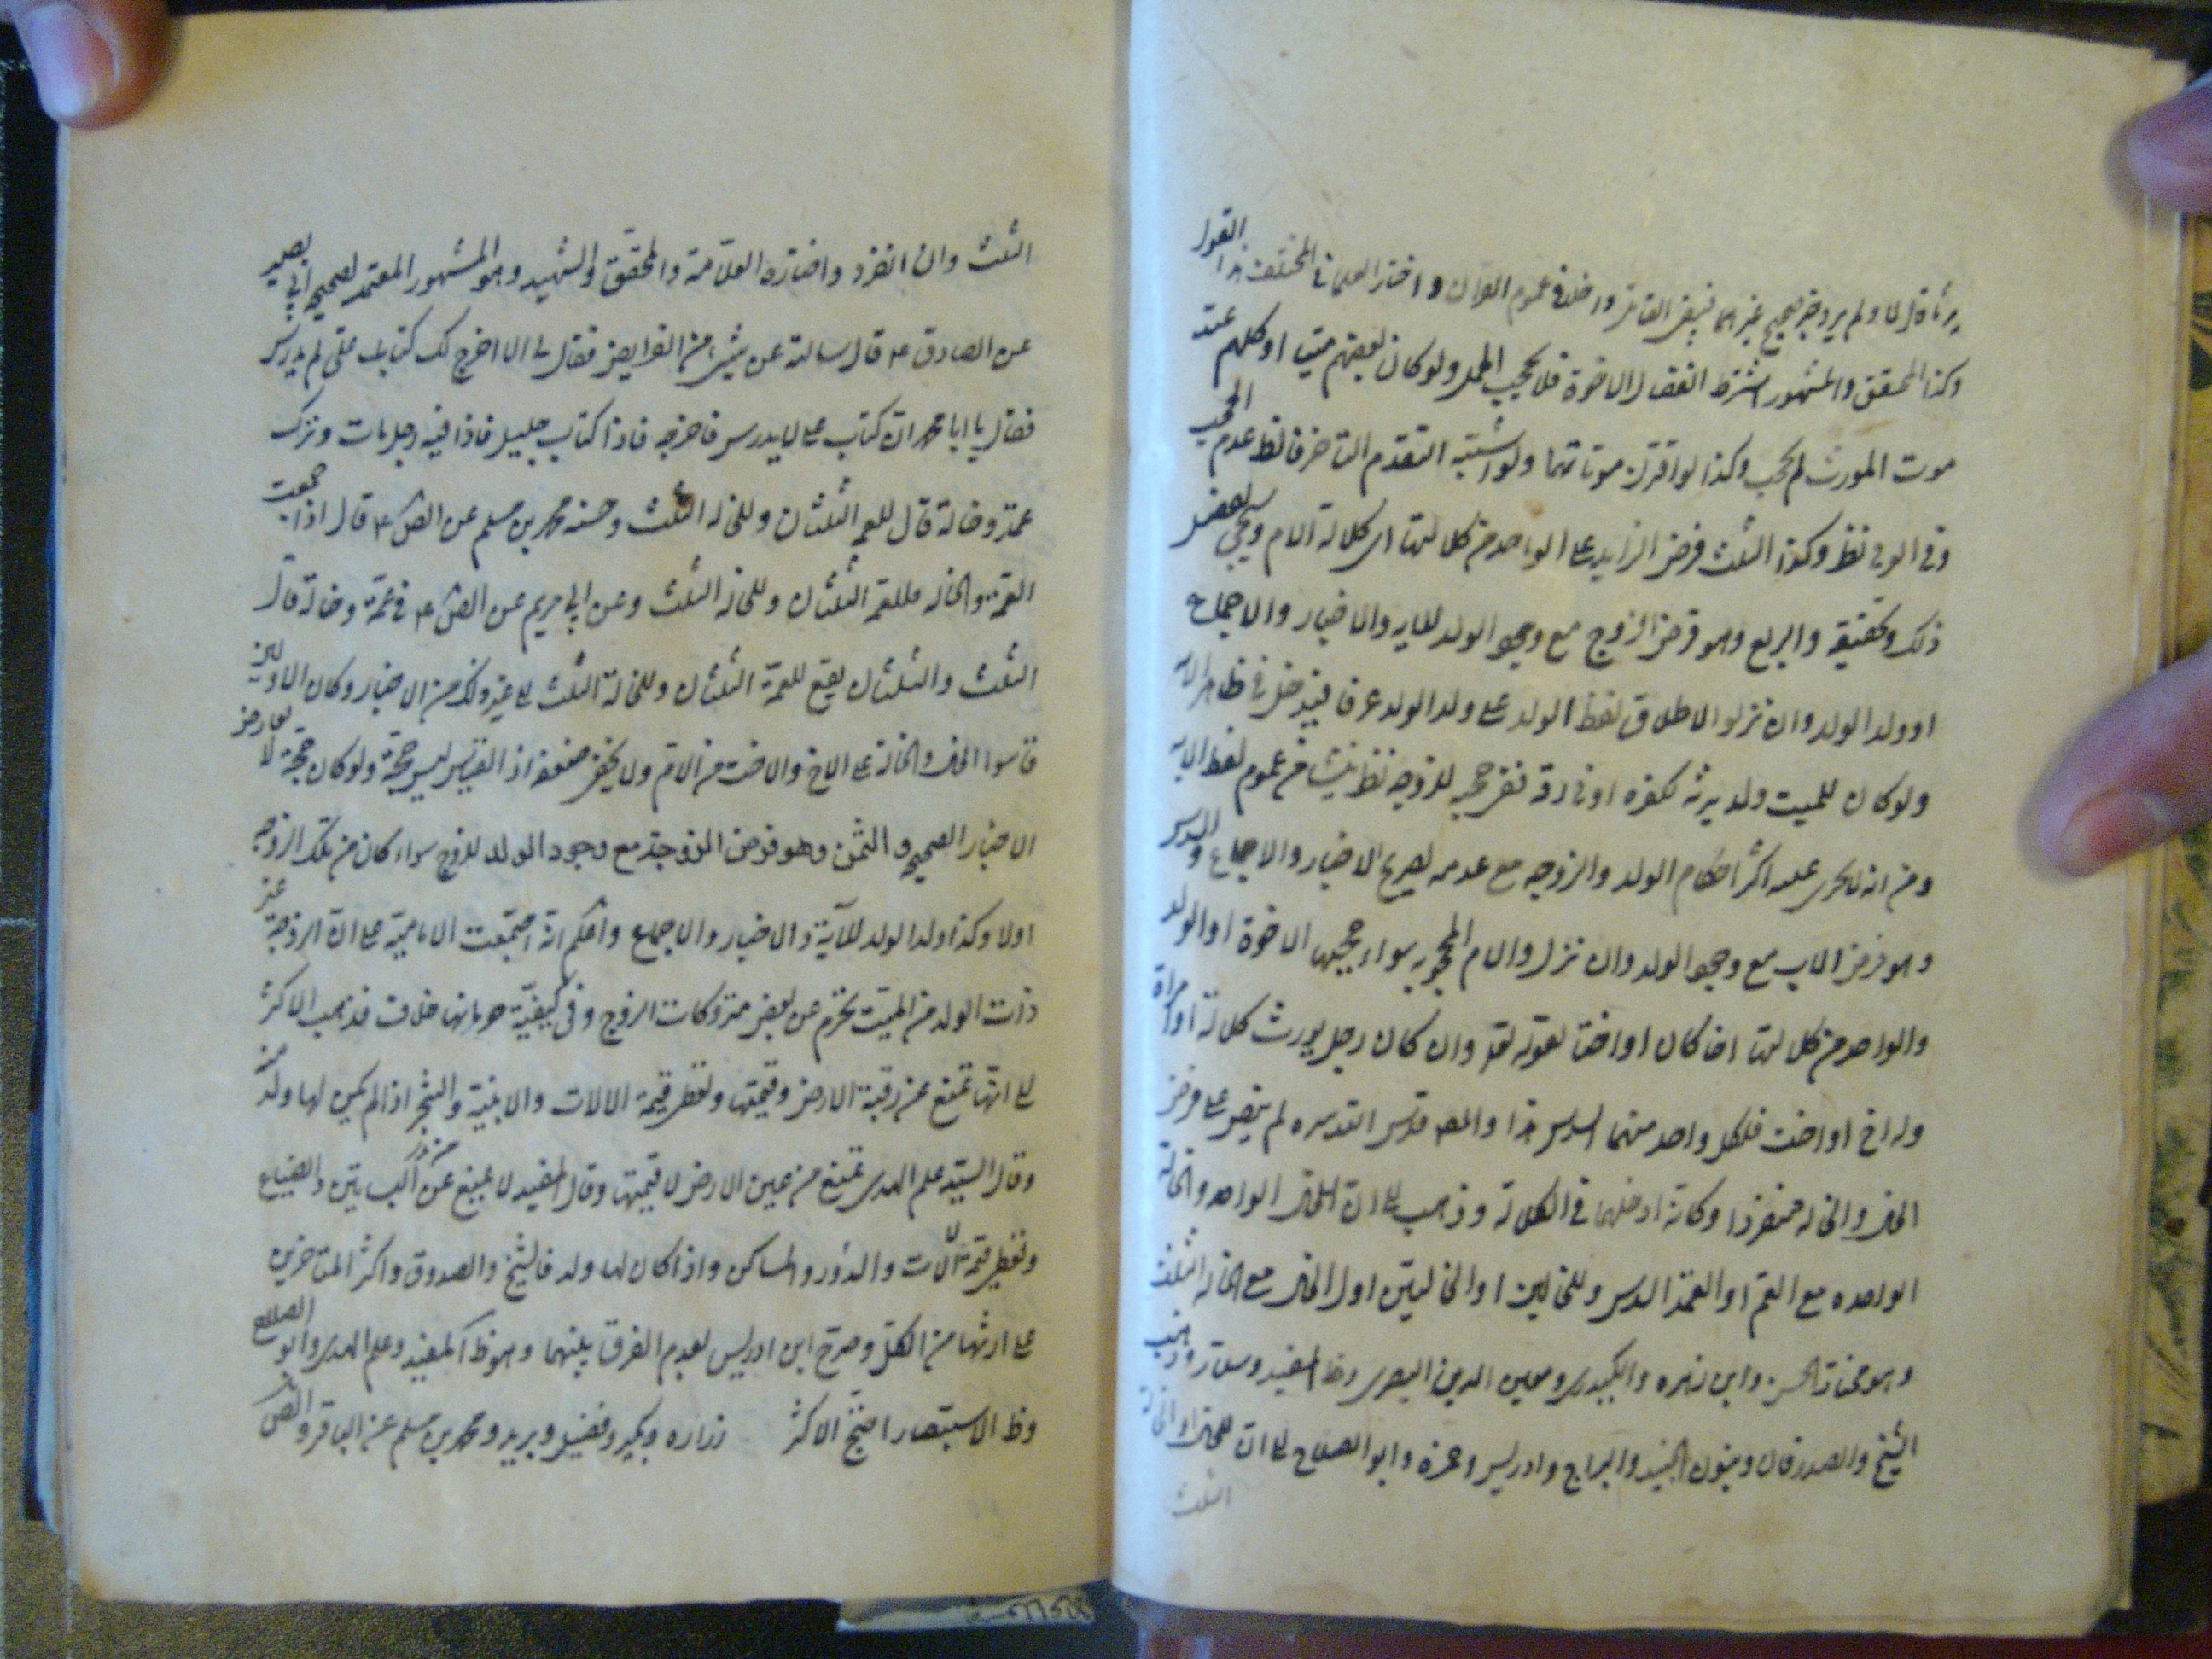 يرثا قال لا ولم يرد خبر صحيح غيرهما فيبقى القاتل داخلا في عموم القران واختار العلامة في المختلف هذا القول
وكذا المحقق والمشهور اشتراط انفصال الاخوة فلا يحجب الحمل ولو كان بعضهم ميتا او كلهم عند
موت المورث لم يحجب وكذا لو اقترن موتاهما ولو اشتبه التقدم التاخر فالظ عدم الحجب
وفي الغرقى نظر وكذا الثلث فرض الزايد على الواحد من كلالتها اى كلالة الام ويجئ بعض
ذلك وتحقيقه والربع وهو فرض الزوج مع وجود الولد للايه والاخبار والاجماع
او ولد الولد وان نزلوا لاطلاق لفظ الولد على ولد الولد عرفا فيدخل في ظاهر الايه
ولو كان للميت ولد يرثه لكفره او في رقه نفى حجبه للزوجه نظر ينشا من عموم لفظ الايه
ومن انه لا يجرى عليه اكثر احكام الولد والزوجه مع عدمه لصريح الاخبار والاجماع والسدس
وهو فرض الاب مع وجود الولد وان نزل والام المحجوبه سواء حجبها الاخوة او الولد
والواحد من كلالتها اخا كان او اختا لقوله تعالى وان كان رجل يورث كلالة او امراة
وله اخ او اخت فلكل واحد منهما السدس هذا والمص قدس الله سره لم يتعرض على فرض
الخال والخاله منفردا وكانه ادخلهما في الكلالة وذهب الى ان للخال الواحد والخالة
الواحده مع العم او العمة السدس وللخالين او الخالتين او الخال مع الخاله الثلث
وهو مختار الحسن وابن زهره والكيدرى ومعين الدين المصرى وظ المفيد وسلار وذهب
الشيخ والصدوقان وبنون الجنيد والبراج وادريس وحمزه وابو الصلاح الى ان للخال او الخالة
الثلث
الثلث وان انفرد واختاره العلامة والمحقق والشهيد وهو المشهور المعتمد لصحيحه ابي بصير
عن الصادق ع قال سالته عن شئ من الفرايض فقال لى الا اخرج لك كتاب على لم يدرس
فقال يا ابا محمد ان كتاب على لا يدرس فاخرجه فاذا كتاب جليل فاذا فيه رجل مات وترك
عمة وخالة قال للعم الثلثان وللخاله الثلث وحسنه محمد بن مسلم عن الص ع قال اذا اجتمعت
العمة والخاله فللعمة الثلثان وللخاله الثلث وعن ابي مريم عن الص ع في عمة وخالة قال
الثلث والثلثان يعنى للعمة الثلثان وللخالة الثلث الى غير ذلك من الاخبار وكان الاولين
قاسوا الخال والخالة على الاخ والاخت من الام ولا يخفى ضعفه اذ القياس ليس حجة ولو كان حجة لا يعارض
الاخبار الصحيحه والثمن وهو فرض الزوجة مع وجود الولد للزوج سواء كان من تلك الزوجه
اولا وكذا ولد الولد للآية والاخبار والاجماع واعلم انه اجتمعت الامامية على ان الزوجة غير
ذات الولد من الميت تحرم عن بعض متروكات الزوج وفي كيفية حرمانها خلاف فذهب الاكثر
الى انها تمنع من رقبة الارض وقيمتها وتعطى قيمة الالات والابنية والشجر اذا لم يكن لها ولد منه
وقال السيد علم الهدى تمنع من عين الارض لا قيمتها وقال المفيد لا تمنع عن البساتين والضياع
وتعطى قيمة الالات والدور والمساكن واذا كان لها ولد فالشيخ والصدوق واكثر المتاخرين
على ارثها من الكل وصرح ابن ادريس بعدم الفرق بينهما وهو ظ المفيد وعلم الهدى وابو الصلاح
وظ الاستبصار احتج الاكثر زراره وبكير وفضيل وبريد ومحمد بن مسلم عن الباقر والص